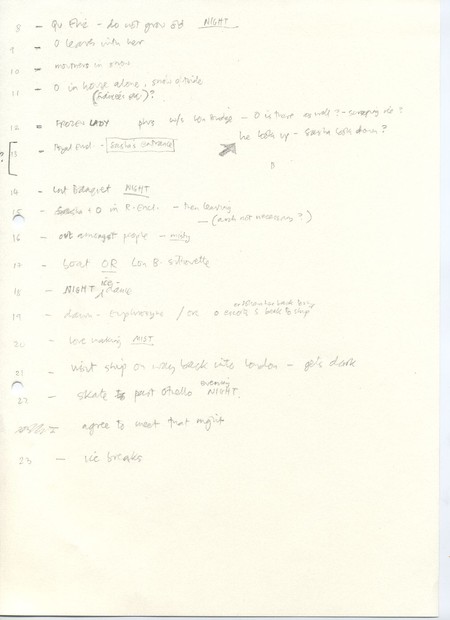 8 - Qu Eliz - do not grow old NIGHT
9 - O leaves with her
10 - mourners in snow
11 - O in house alone, snow outside
?
12 - FROZEN LADY plus w/s Lon bridge - O is there as well? -
he looks up - Sasha looks down?
? 13 - Royal Encl - Sasha's entrance
"
14 - Lord Banquet NIGHT
15 - Sasha + O in R. Encl. - then leaving
- (and not necessary?)
16 - out amongst people - misty
17 - boat OR Lon B. silhouette
18 - NIGHT ice dance
19 - dawn - / on O S back to ship
20 - love making MIST
21 - visit ship on way back into London - gets dark
22 - skate to past Othello evening NIGHT
agree to meet that night
23 - ice breaks